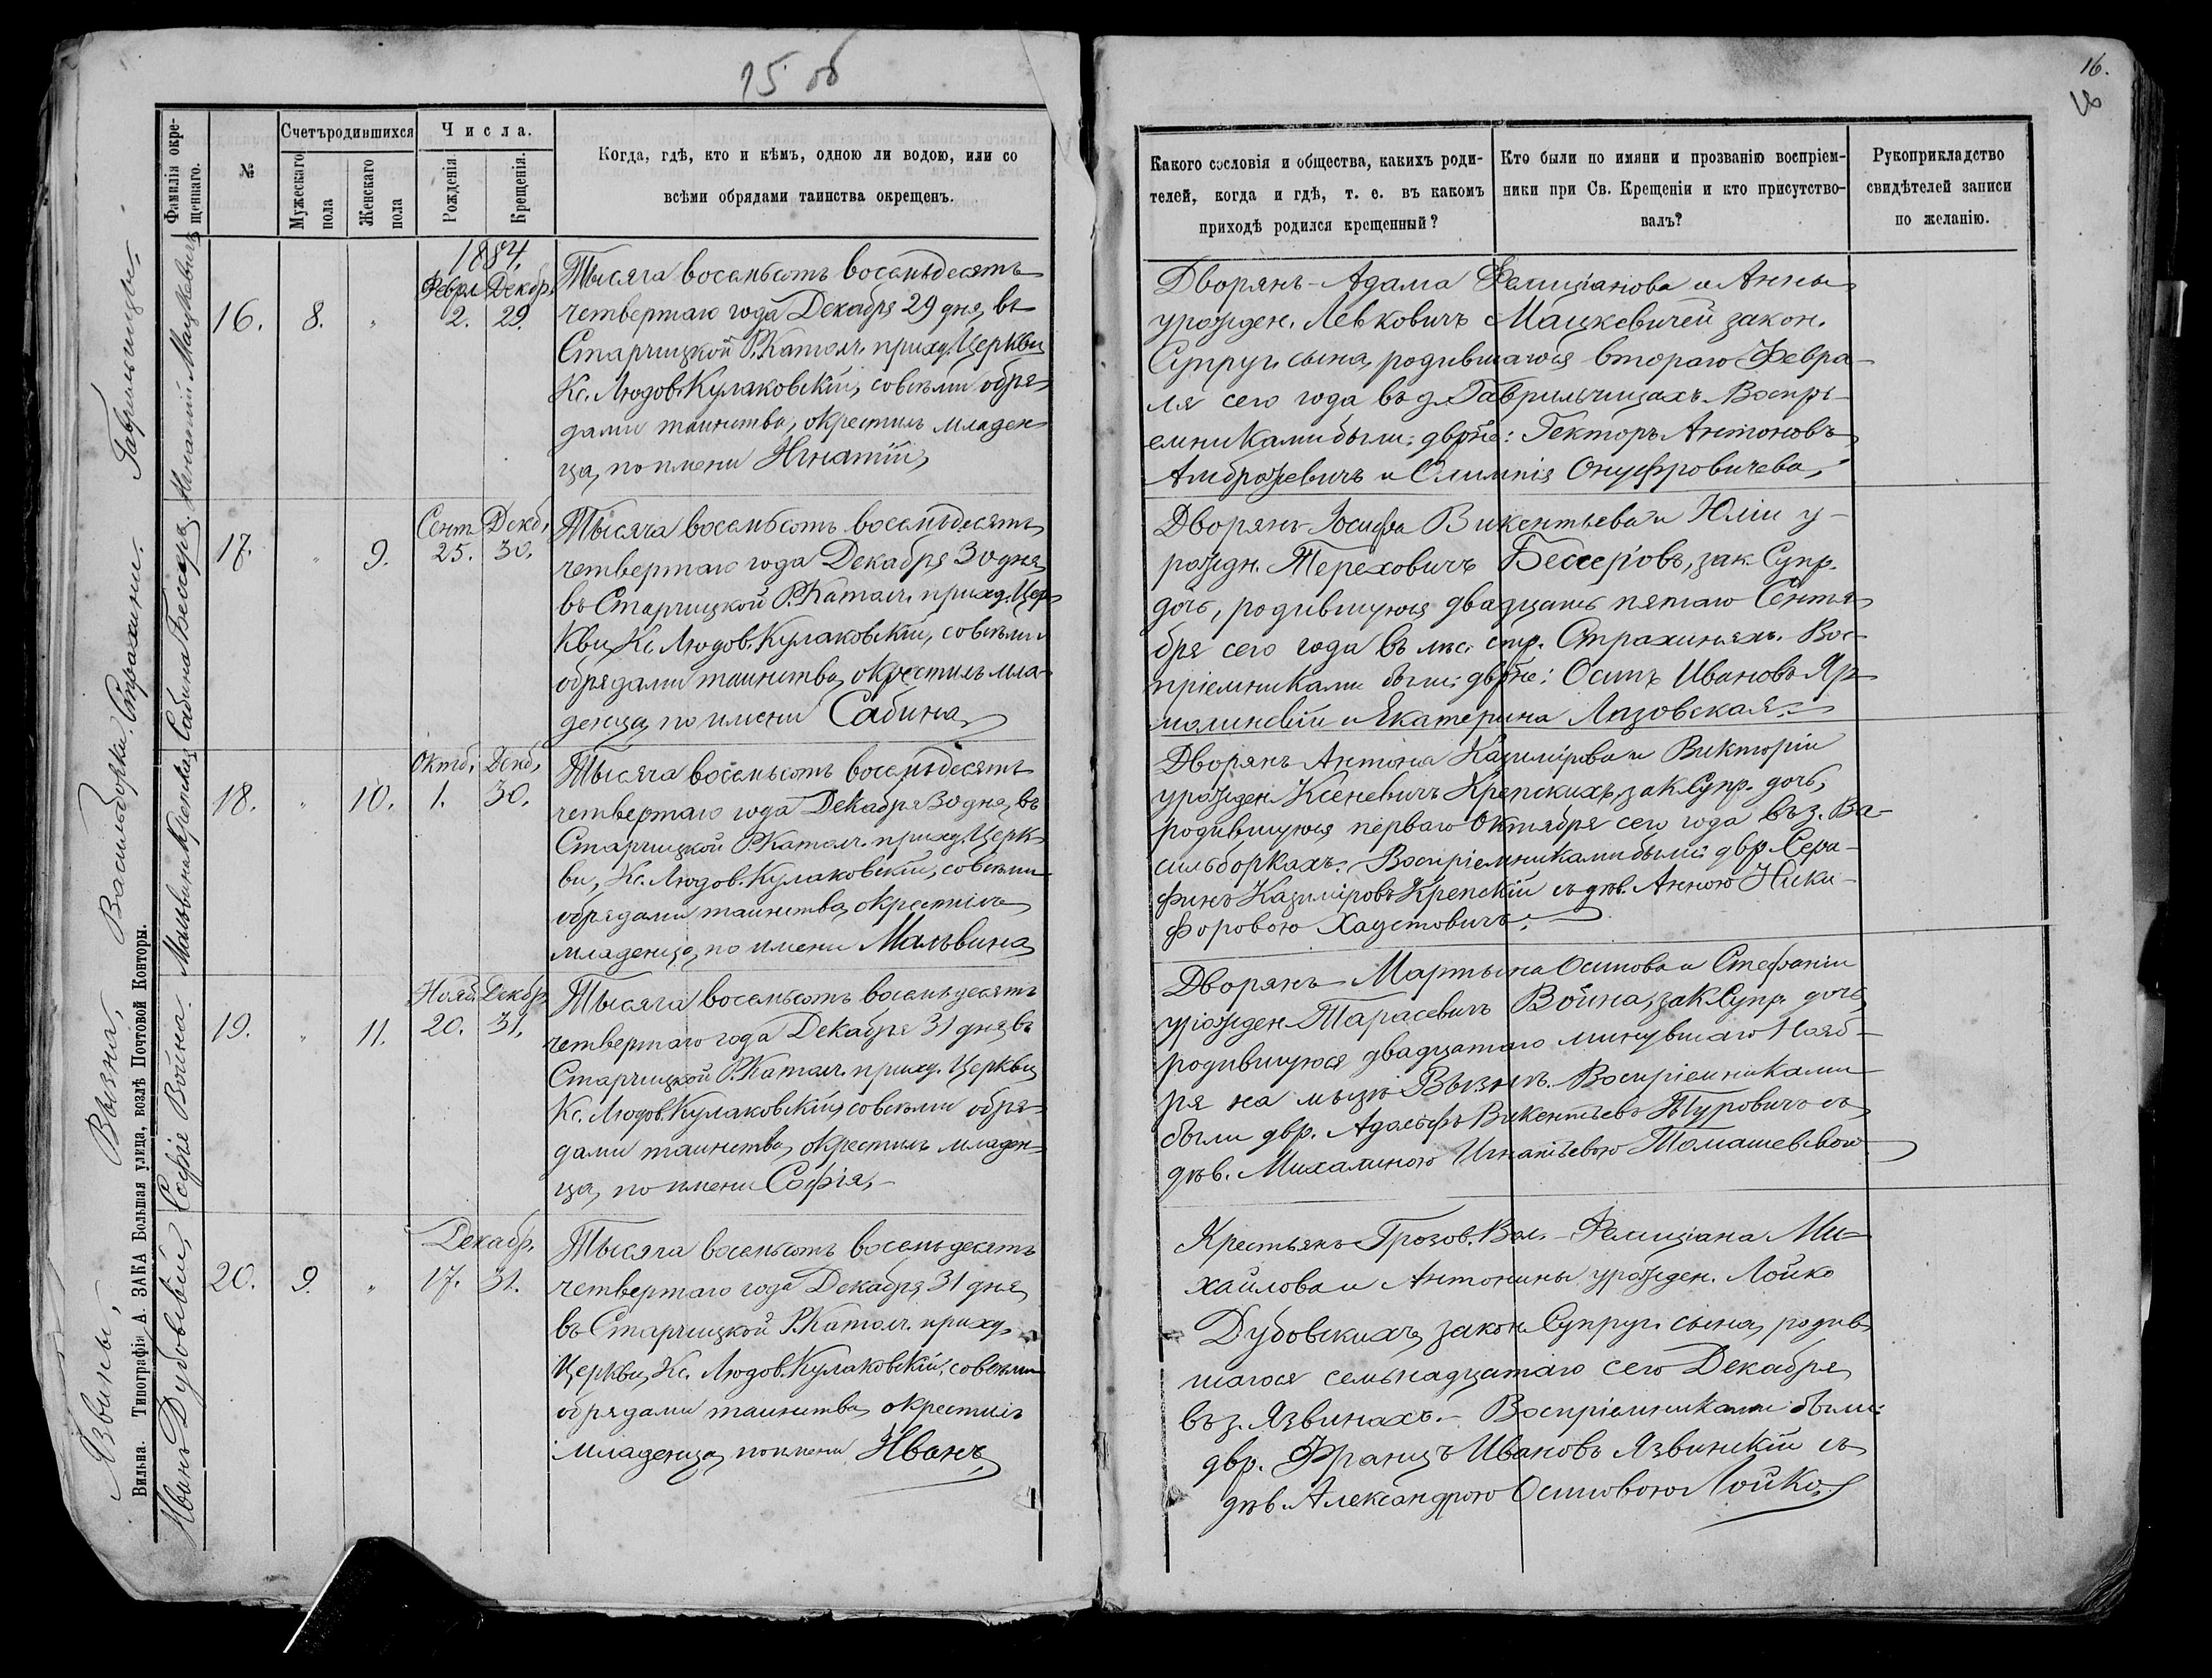 15 об
16.
Фамилія окре-
щеннаго.
№
Счетъ родившихся
Мужескаго
пола
Женскаго
пола
Числа.
Рожденія.
Крещенія.
Когда, гдѣ, кто и кѣмъ, одною ли водою, или со
всѣми обрядами таинства окрещенъ.
Какого сословія и общества, какихъ роди-
телей, когда и гдѣ, т. е. въ какомъ
приходѣ родился крещенный?
Кто были по имяни и прозванію воспріем-
ники при Св. Крещеніи и кто присутство-
валъ?
Рукоприкладство
свидѣтелей записи
по желанію.
Гаврильчицы.
Игнатій Мацкевичъ
16.
8.
"
1884.
Феврл Декбр.
2. 29.
Тысяча восемьсотъ восемьдесятъ
четвертаго года Декабря 29 дня, въ
Старчицкой Р. Катол. приход. Церкви
Кс. Людов. Кулаковскій, совсѣми обря-
дами таинства, окрестилъ младен-
ца, по имени Игнатій,
Дворянъ - Адама Фелиціанова и Анны
урожден. Левковичъ Мацкевичей закон.
Супруг. сына, родившагося втораго Февра-
ля сего года въ д. Гаврильчицахъ. Воспрі-
емниками были: дврне: Гекторъ Антоновъ
Амброжевичъ и Олимпія Онуфровичева,
Страхини.
Сабина Бессеръ
17.
"
9.
Сент. Декб.
25. 30.
Тысяча восемьсотъ восемьдесятъ
четвертаго года Декабря 30 дня
въ Старчицкой Р. Катол. приход. Цер-
кви, Кс. Людов. Кулаковскій, совсѣми
обрядами таинства, окрестилъ мла-
денца, по имени Сабина,
Дворянъ Іосифа Викентьева и Юліи у-
рождн. Тереховичъ Бессеровъ, зак. Супр.
дочь, родившуюся двадцать пятаго Сентя-
бря сего года въ лѣс. стр. Страхиняхъ. Вос-
пріемниками были: дврне: Осипъ Ивановъ Яр-
молинскій и Екатерина Лазовская.
Васильборки.
Мальвина Крепская
18.
"
10.
Октб. Декб.
1. 30.
Тысяча восемьсотъ восемьдесятъ
четвертаго года Декабря 30 дня, въ
Старчицкой Р. Катол. приход. Церк-
ви, Кс. Людов. Кулаковскій, совсѣми
обрядами таинства, окрестилъ
младенца, по имени Мальвина,
Дворянъ Антона Казимірова и Викторіи
урожден. Ксеневичъ Крепскихъ, зак. Супр. дочь,
родившуюся перваго Октября сего года въ з. Ва-
сильборкахъ. Воспріемниками были: двр. Сера-
финъ Казиміровъ Крепскій съ дѣв. Анною Ники-
форовою Хаустовичъ.
Вызна,
Софія Война.
19.
"
11.
Нояб. Декбр.
20. 31.
Тысяча восемьсотъ восемьдесятъ
четвертаго года Декабря 31 дня, въ
Старчицкой Р. Катол. приход. Церкви
Кс. Людов. Кулаковскій, совсѣми обря-
дами таинства, окрестилъ младен-
ца, по имени Софія,
Дворянъ - Мартына Осипова и Стефаніи
урожден. Тарасевичъ Война, зак. Супр. дочь,
родившуюся двадцатаго минувшаго Нояб-
ря на мызѣ Вызнѣ. Воспріемниками
были двр. Адольфъ Викентьевъ Туровичъ съ
дѣв. Михалиною Игнатьевою Томашевскою
Язвины,
Иванъ Дубовскій,
20.
9.
"
Декабр.
17. 31.
Тысяча восемьсотъ восемьдесятъ
четвертаго года Декабря 31 дня,
въ Старчицкой Р. Катол. приход.
Церкви, Кс. Людов. Кулаковскій, совсѣми
обрядами таинства, окрестилъ
младенца, по имени Иванъ,
Крестьянъ Грозов. Вол. - Фелиціана Ми-
хайлова и Антонины, урожден. Лойко
Дубовскихъ, закон. Супруг. сына, родив-
шагося семьнадцатаго сего Декабря
въ з. Язвинахъ. - Воспріемниками были:
двр. Францъ Ивановъ Язвинскій съ
дѣв. Александрою Осиповою Лойко,
Вильна. Типографія А. ЗАКА Большая улица, возлѣ Почтовой Конторы.